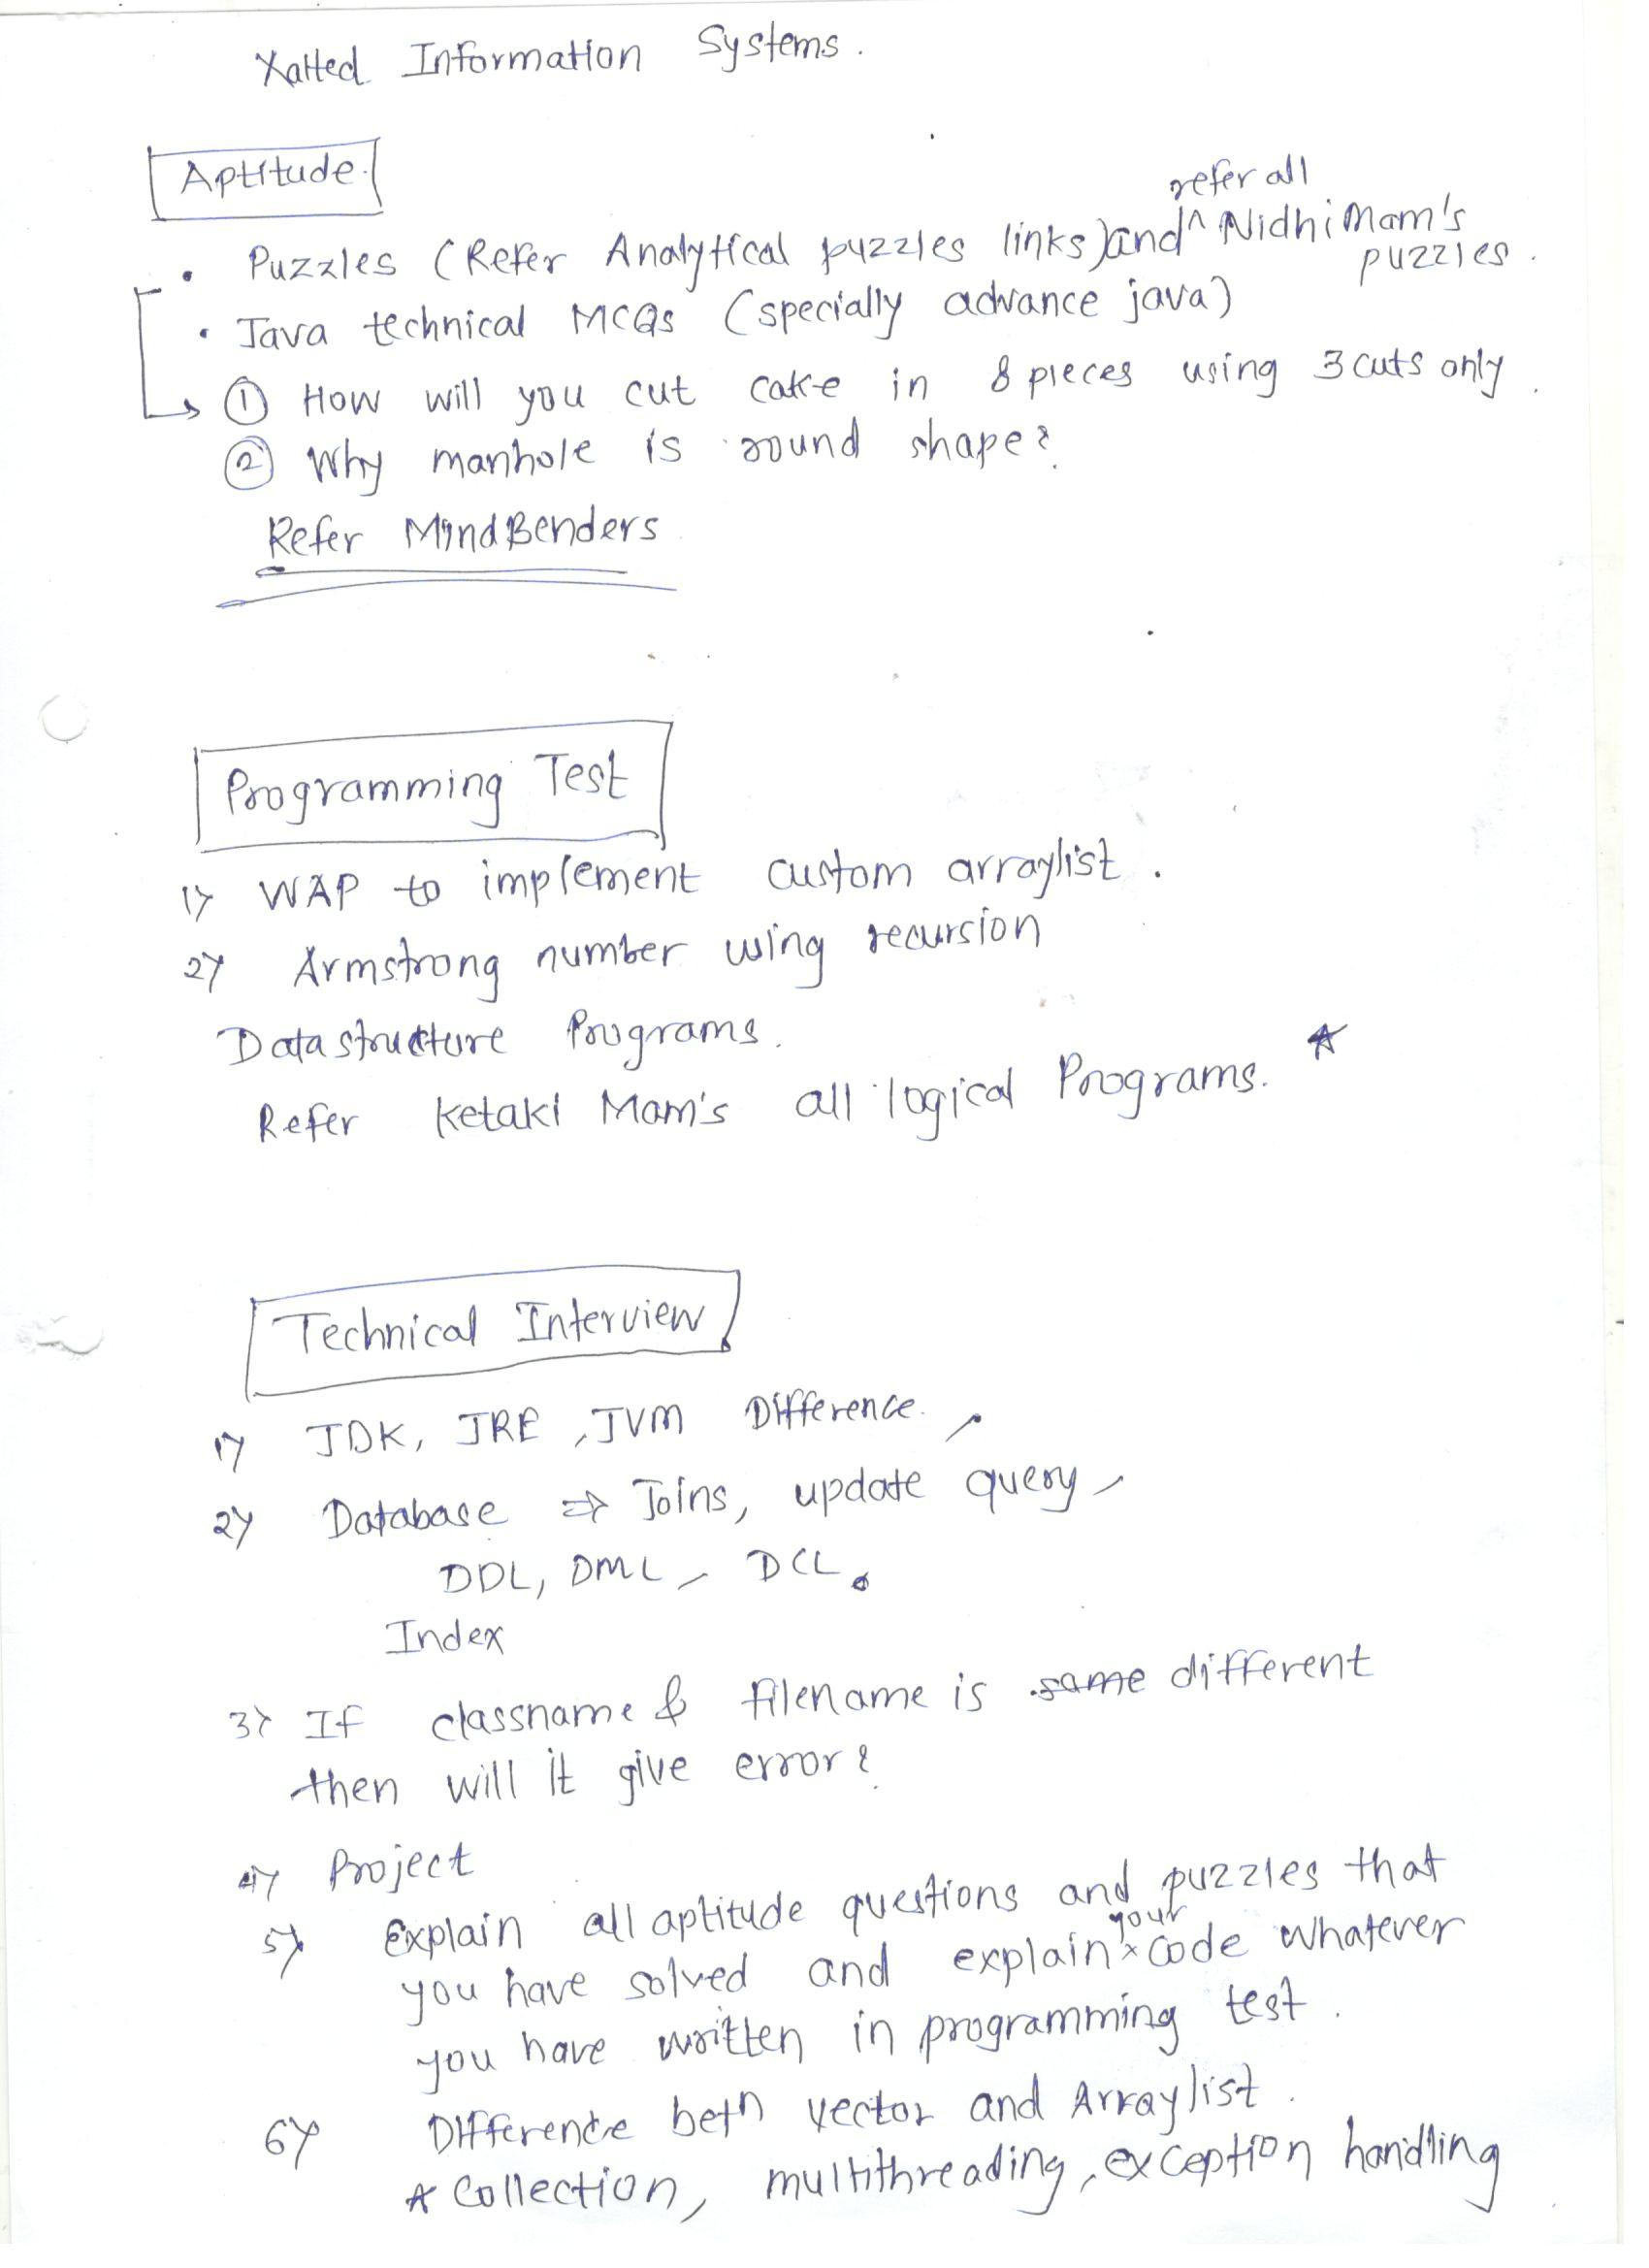 Xalted Information Systems.
Aptitude.
refer all
• Puzzles (Refer Analytical puzzles links) and ^ Nidhi Mam's
puzzles.
• Java technical MCQs (specially advance java)
① How will you cut cake in 8 pieces using 3 cuts only.
② Why manhole is round shape?
Refer MindBenders
Programming Test
1) WAP to implement custom arraylist.
2) Armstrong number using recursion
Datastructure Programs.
Refer Ketaki Mam's all logical Programs. *
Technical Interview
1) JDK, JRE, JVM Difference.
2) Database ⇒ Joins, update query,
DDL, DML, DCL.
Index
3) If classname & filename is same different
then will it give error?
4) Project
5) Explain all aptitude questions and puzzles that
your
you have solved and explain ^ code whatever
you have written in programming test.
6) Difference betn vector and Arraylist.
* Collection, multithreading, exception handling